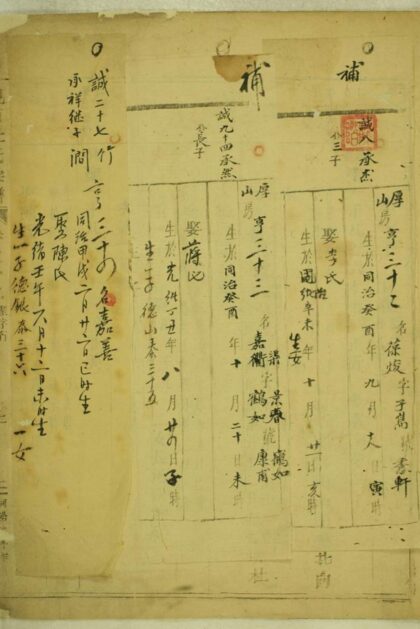 補
誠八承杰
公三子
厚山易 亨三十二 名葆焌 字子嵩 號書軒
生於同治癸酉年九月十八日寅時
娶李氏
生於同治辛未年十月廿一日亥時
生女
補
誠九十四承然
公長子
厚山易 亨三十三 名嘉衢 字景春 鶴如 號康甫
生於同治癸酉年十月二十日未時
娶蔣氏
生於光緒丁丑年八月廿四日子時
生一子德山泰三十五
誠二十七竹
承祥继子 澗
亨三十四 名嘉善
同治甲戌二月廿六日巳时生
娶陳氏
光緒壬午年六月十二日未时生
生一子德银泰三十六 一女